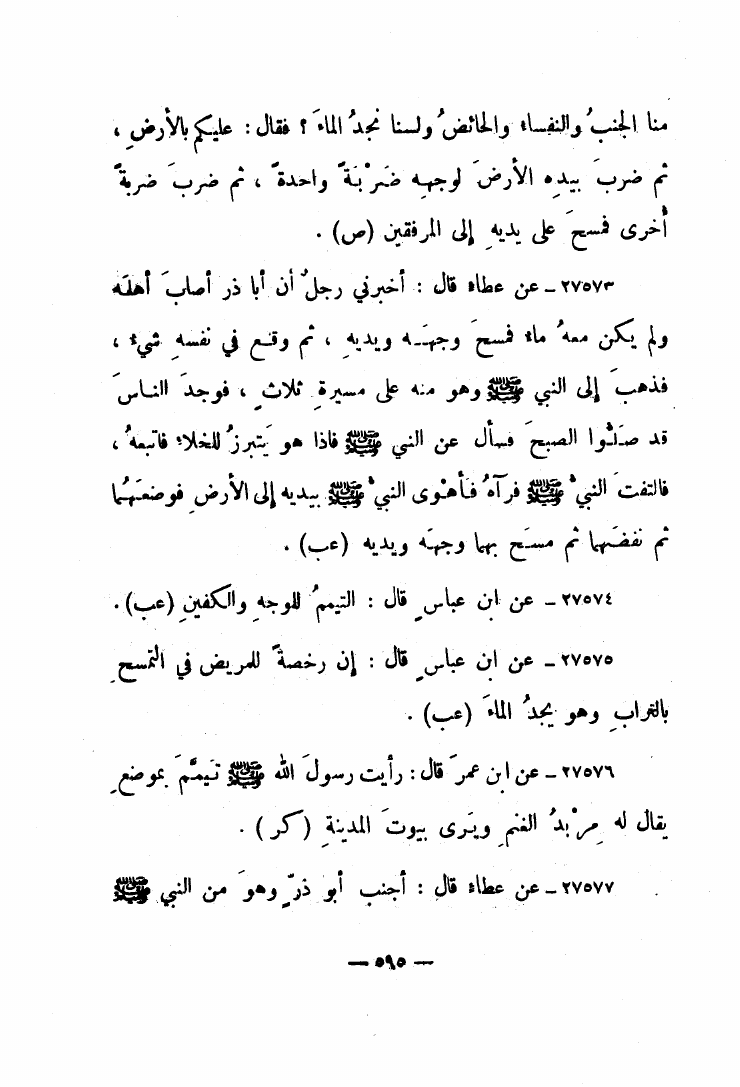 منا الجنبُ والنفساء والحائضُ ولسنا نجدُ الماءَ ؟ فقال : عليكم بالأرضِ ،
ثم ضربَ بيدِه الأرضَ لوجهِه ضَرْبَةً واحدةً ، ثم ضربَ ضربةً
أخرى فمسحَ على يديهِ إلى المرفقين (ص) .
٢٧٥٧٣ ـ عن عطاء قال : أخبرني رجلٌ أن أبا ذر أصابَ أهلَه
ولم يكن معهُ ماء فمسحَ وجهَـه ويديهِ ، ثم وقـع في نفسهِ شيء ،
فذهبَ إلى النبي ﷺ وهو منه على مسيرةِ ثلاثٍ ، فوجدَ الناسَ
قد صلَّوا الصبحَ فسأل عن النبي ﷺ فاذا هو يَتبرزُ للخلاء فاتبعهُ ،
فالتفتَ النبيُّ ﷺ فرآهُ فأهْوى النبيُّ ﷺ بيديه إلى الأرضِ فوضعَهُما
ثم نفضَهما ثم مسحَ بهما وجهَه ويديه (عب) .
٢٧٥٧٤ ـ عن ابن عباسٍ قال : التيممُ للوجهِ والكفينِ (عب) .
٢٧٥٧٥ ـ عن ابن عباسٍ قال : إن رخصةً للمريض في التمسحِ
بالترابِ وهو يجدُ الماءَ (عب) .
٢٧٥٧٦ ـ عن ابن عمرَ قال : رأيت رسولَ الله ﷺ تَيمَّمَ بموضعٍ
يقال له مِرْبدُ الغنمِ ويَرى بيوتَ المدينةِ (كر) .
٢٧٥٧٧ ـ عن عطاء قال : أجنب أبو ذرٍّ وهوَ من النبي ﷺ
— ٥٩٥ —